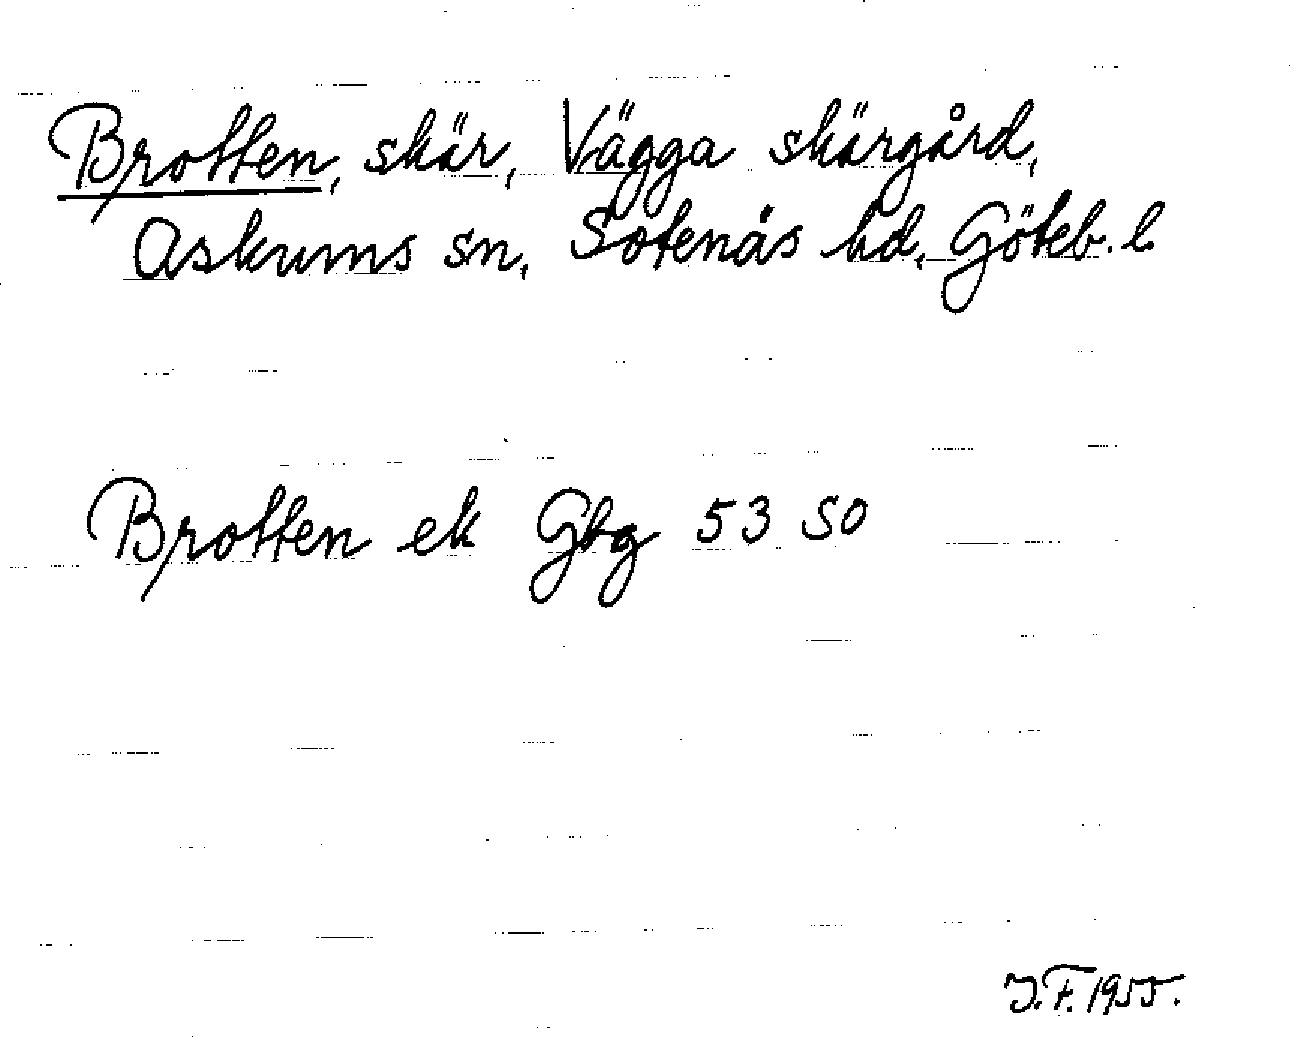 Brotten, skär, Vägga skärgård,
Askums sn, Sotenäs hd, Göteb. l.
Brotten ek Gbg 53 SO
J.F. 1955.